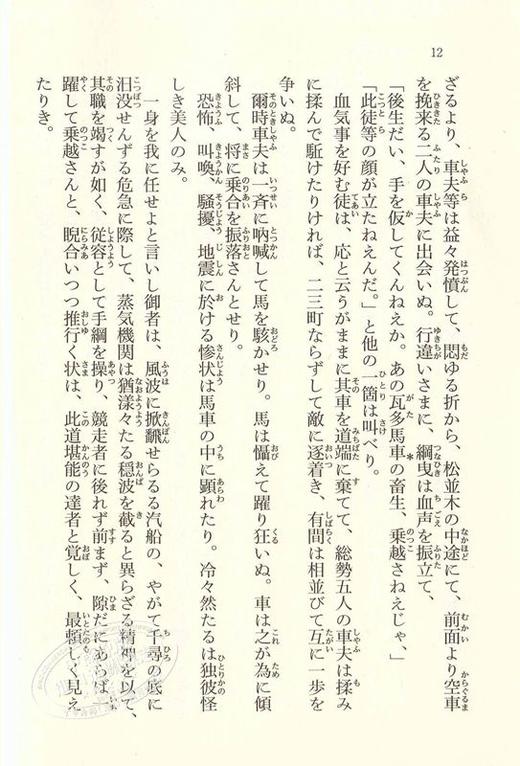 12
ざるより、車夫等は益々発憤して、悶ゆる折から、松並木の中途にて、前面より空車
を挽来る二人の車夫に出会いぬ。行違いさまに、綱曳は血声を振立て、
「後生だい、手を仮してくんねえか。あの瓦多馬車の畜生、乗越さねえじゃ、」
「此徒等の顔が立たねえんだ。」と他の一箇は叫べり。
血気事を好む徒は、応と云うがままに其車を道端に棄てて、総勢五人の車夫は揉み
に揉んで駈けたりければ、二三町ならずして敵に逐着き、有間は相並びて互に一歩を
争いぬ。
爾時車夫は一斉に吶喊して馬を駭かせり。馬は懾えて躍り狂いぬ。車は之が為に傾
斜して、将に乗合を振落さんとせり。
恐怖、叫喚、騒擾、地震に於ける惨状は馬車の中に顕れたり。冷々然たるは独彼怪
しき美人のみ。
一身を我に任せよと言いし御者は、風波に掀翻せらるる汽船の、やがて千尋の底に
汨没せんずる危急に際して、蒸気機関は猶漾々たる穏波を截ると異らざる精神を以て、
其職を竭すが如く、従容として手綱を操り、競走者に後れず前まず、隙だにあらば一
躍して乗越さんと、睨合いつつ推行く状は、此道堪能の達者と覚しく、最頼しく見え
たりき。